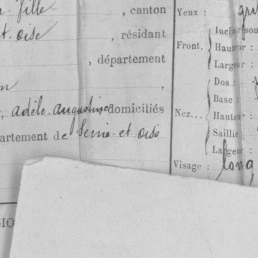 fille , canton
et oise , résidant
, département
, adèle augustine domiciliés
partement de Seine et oise
Yeux :
Front.
Hauteur :
Largeur :
Dos :
Base :
Nez... Hauteur
Saillie
Largeur
Visage : long